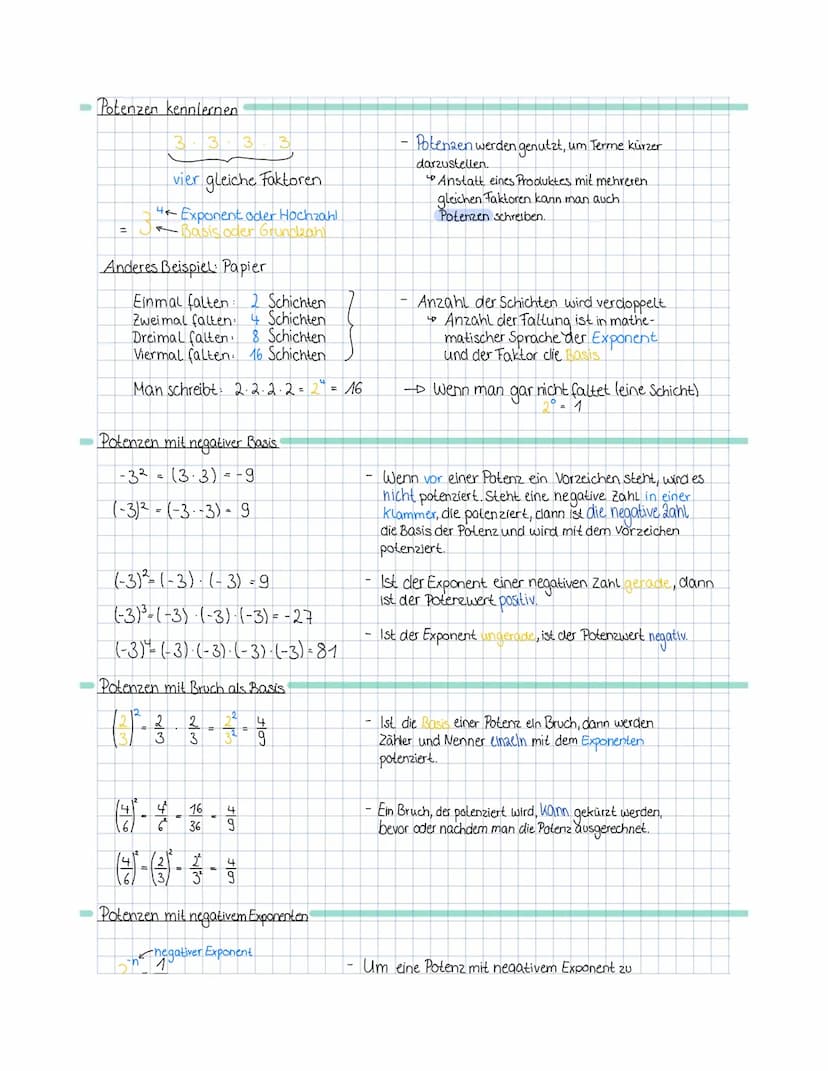 Potenzen kennlernen
3 · 3 · 3 · 3
vier gleiche Faktoren
= 3⁴ ← Exponent oder Hochzahl
← Basis oder Grundzahl
- Potenzen werden genutzt, um Terme kürzer
darzustellen.
↳ Anstatt eines Produktes mit mehreren
gleichen Faktoren kann man auch
Potenzen schreiben.
Anderes Beispiel: Papier
Einmal falten: 2 Schichten
Zweimal falten: 4 Schichten
Dreimal falten: 8 Schichten
Viermal falten: 16 Schichten
Man schreibt: 2·2·2·2 = 2⁴ = 16
- Anzahl der Schichten wird verdoppelt
↳ Anzahl der Faltung ist in mathe-
matischer Sprache der Exponent
und der Faktor die Basis
→ Wenn man gar nicht faltet (eine Schicht)
2⁰ = 1
Potenzen mit negativer Basis
-3² = (3·3) = -9
(-3)² = (-3·-3) = 9
- Wenn vor einer Potenz ein Vorzeichen steht, wird es
nicht potenziert. Steht eine negative Zahl in einer
Klammer, die potenziert, dann ist die negative Zahl
die Basis der Potenz und wird mit dem Vorzeichen
potenziert.
(-3)² = (-3) · (-3) = 9
(-3)³ = (-3) · (-3) · (-3) = -27
(-3)⁴ = (-3) · (-3) · (-3) · (-3) = 81
- Ist der Exponent einer negativen Zahl gerade, dann
ist der Potenzwert positiv.
- Ist der Exponent ungerade, ist der Potenzwert negativ.
Potenzen mit Bruch als Basis
(2/3)² = 2/3 · 2/3 = 2²/3² = 4/9
- Ist die Basis einer Potenz ein Bruch, dann werden
Zähler und Nenner einzeln mit dem Exponenten
potenziert.
(4/6)² = 4²/6² = 16/36 = 4/9
(4/6)² = (2/3)² = 2²/3² = 4/9
- Ein Bruch, der potenziert wird, kann gekürzt werden,
bevor oder nachdem man die Potenz ausgerechnet.
Potenzen mit negativem Exponenten
negativer Exponent
- Um eine Potenz mit negativem Exponent zu